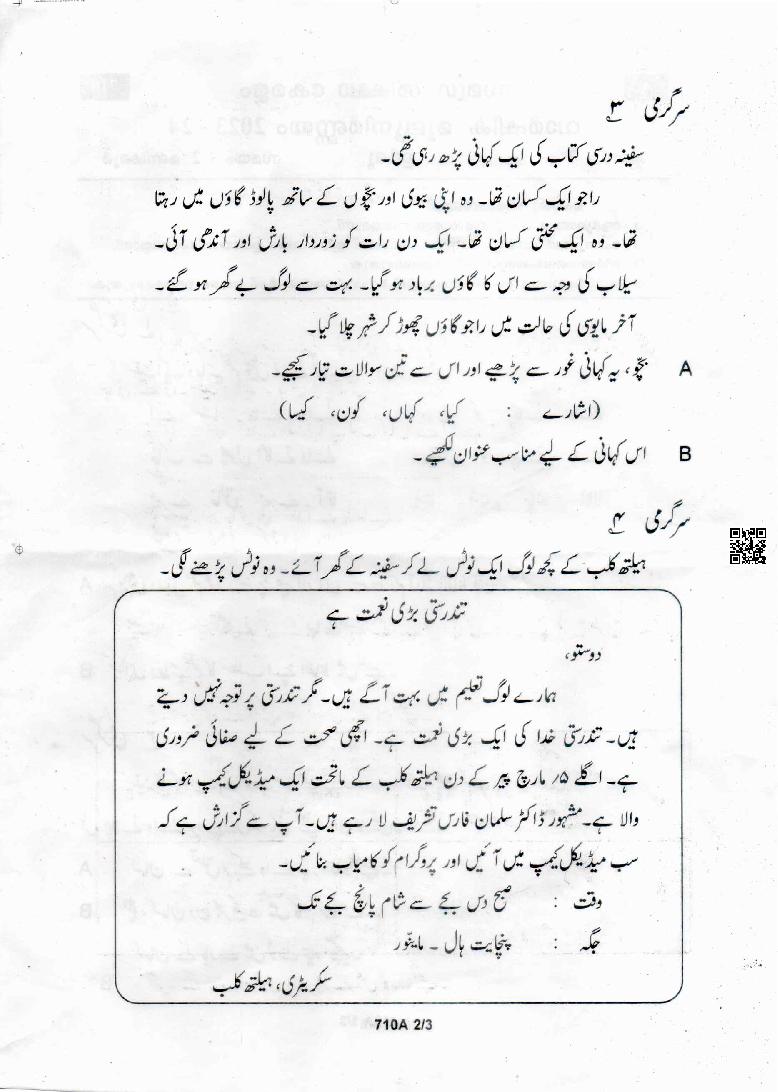 سرگرمی ۳
سفینہ درسی کتاب کی ایک کہانی پڑھ رہی تھی۔
راجو ایک کسان تھا۔ وہ اپنی بیوی اور بچّوں کے ساتھ پالوڈ گاؤں میں رہتا
تھا۔ وہ ایک محنتی کسان تھا۔ ایک دن رات کو زوردار بارش اور آندھی آئی۔
سیلاب کی وجہ سے اس کا گاؤں برباد ہو گیا۔ بہت سے لوگ بے گھر ہو گئے۔
آخر مایوسی کی حالت میں راجو گاؤں چھوڑ کر شہر چلا گیا۔
A بچّو، یہ کہانی غور سے پڑھیے اور اس سے تین سوالات تیار کیجیے۔
(اشارے : کیا، کہاں، کون، کیسا)
B اس کہانی کے لیے مناسب عنوان لکھیے۔
سرگرمی ۴
ہیلتھ کلب کے کچھ لوگ ایک نوٹس لے کر سفینہ کے گھر آئے۔ وہ نوٹس پڑھنے لگی۔
تندرستی بڑی نعمت ہے
دوستو،
ہمارے لوگ تعلیم میں بہت آگے ہیں۔ مگر تندرستی پر توجہ نہیں دیتے
ہیں۔ تندرستی خدا کی ایک بڑی نعمت ہے۔ اچھی صحت کے لیے صفائی ضروری
ہے۔ اگلے ۵؍ مارچ پیر کے دن ہیلتھ کلب کے ماتحت ایک میڈیکل کیمپ ہونے
والا ہے۔ مشہور ڈاکٹر سلمان فارس تشریف لا رہے ہیں۔ آپ سے گزارش ہے کہ
سب میڈیکل کیمپ میں آئیں اور پروگرام کو کامیاب بنائیں۔
وقت : صبح دس بجے سے شام پانچ بجے تک
جگہ : پنچایت ہال ۔ مانّور
سکریٹری، ہیلتھ کلب
710A 2/3